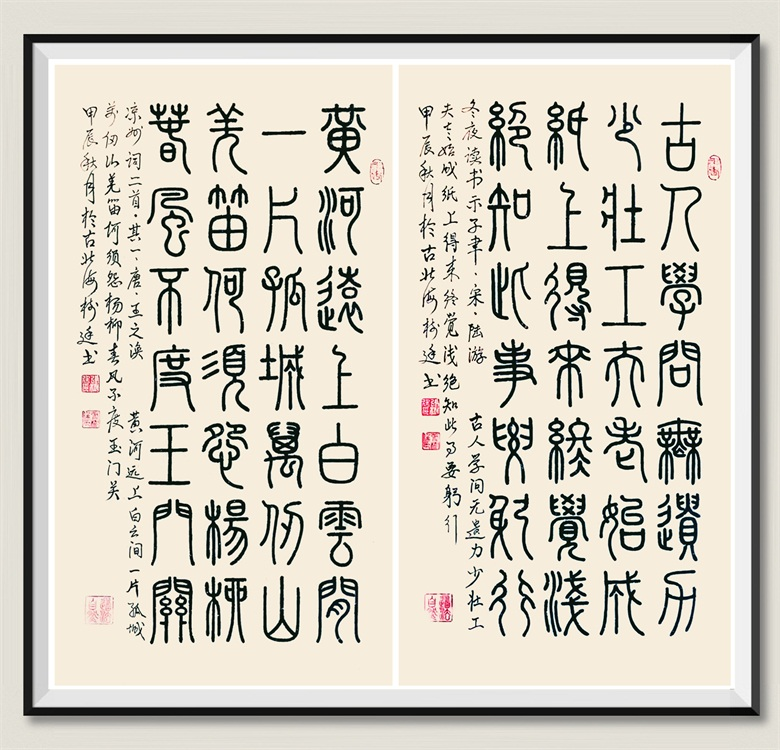 古人學問無遺力
少壯工夫老始成
紙上得來終覺淺
絕知此事要躬行
冬夜读书示子聿·宋·陆游 古人学问无遗力少壮工
夫老始成纸上得来终觉浅绝知此事要躬行
甲辰秋月於古北海樹廷书
黃河遠上白雲間
一片孤城萬仞山
羌笛何須怨楊柳
春風不度玉門關
凉州词二首·其一·唐·王之涣 黄河远上白云间一片孤城
万仞山羌笛何须怨杨柳春风不度玉门关
甲辰秋月於古北海樹廷书